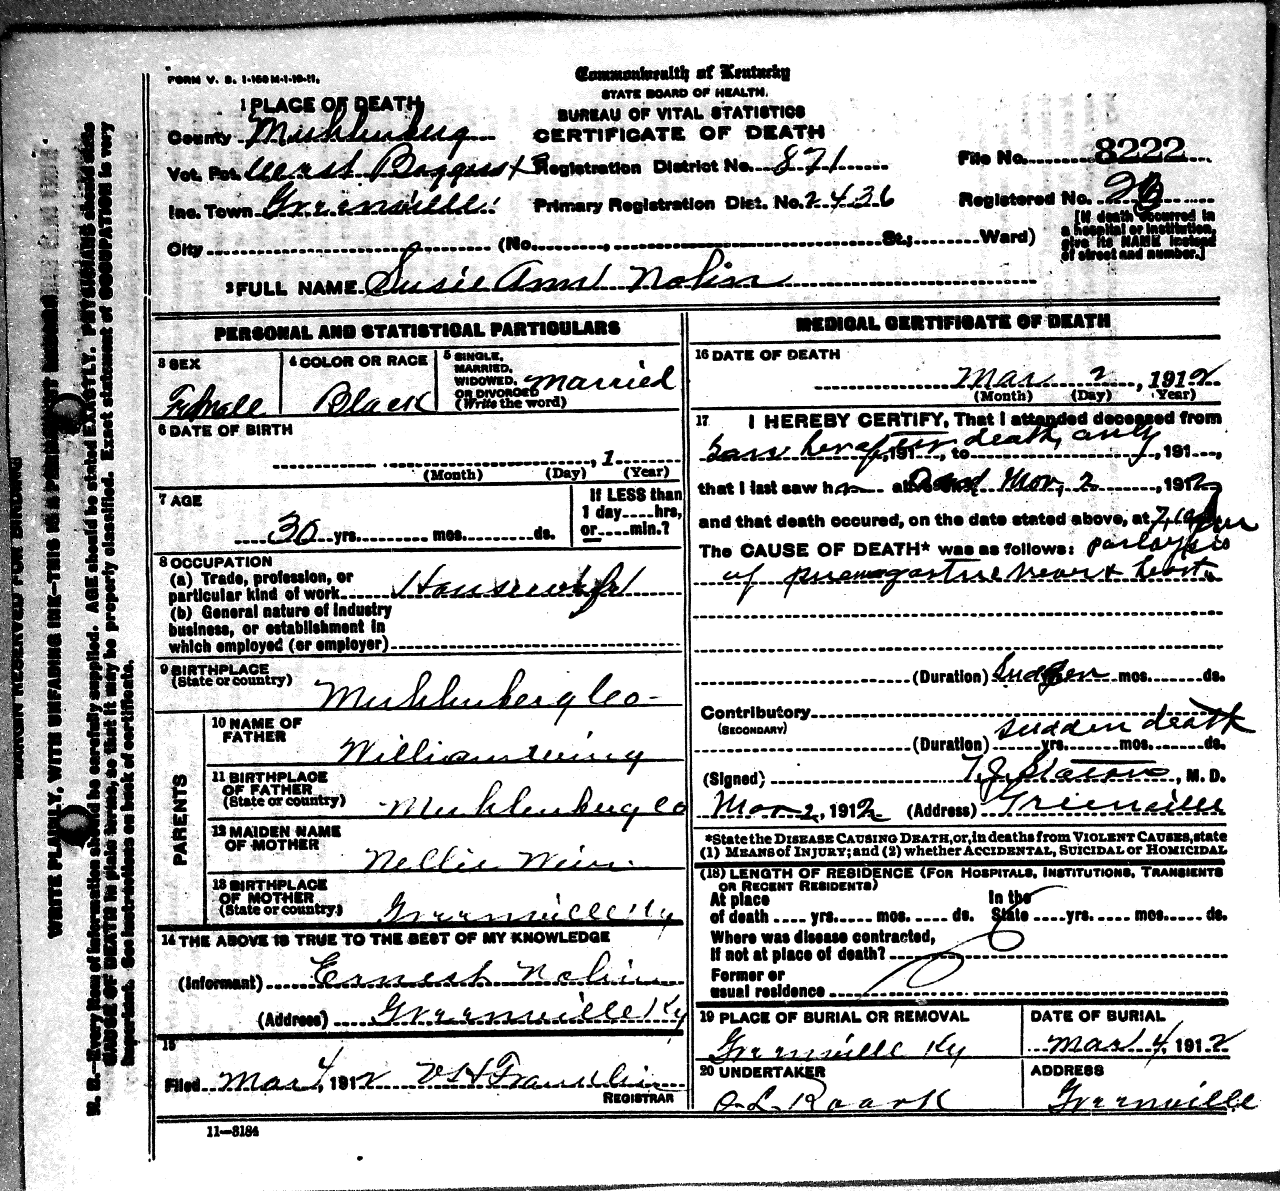 FORM V. S. 1-150 M-1-19-11.
Commonwealth of Kentucky
STATE BOARD OF HEALTH.
BUREAU OF VITAL STATISTICS
CERTIFICATE OF DEATH
1 PLACE OF DEATH
County Muhlenberg
Vot. Pct. West Boggess + Registration District No. 871
File No. 8222
Inc. Town Greenville Primary Registration Dist. No. 2436
Registered No.
City (No. , St.; Ward)
[If death occurred in a hospital or institution, give its NAME instead of street and number.]
2 FULL NAME Susie Ann Nolin
PERSONAL AND STATISTICAL PARTICULARS
3 SEX
Female
4 COLOR OR RACE
Black
5 SINGLE, MARRIED, WIDOWED, OR DIVORCED (Write the word)
married
6 DATE OF BIRTH
, 1
(Month) (Day) (Year)
7 AGE
30 yrs. mos. ds.
If LESS than 1 day hrs, or min.?
8 OCCUPATION
(a) Trade, profession, or particular kind of work Housewife
(b) General nature of industry business, or establishment in which employed (or employer)
9 BIRTHPLACE
(State or country)
Muhlenberg Co
PARENTS
10 NAME OF FATHER
William
11 BIRTHPLACE OF FATHER
(State or country)
Muhlenberg Co
12 MAIDEN NAME OF MOTHER
Nellie Weir
13 BIRTHPLACE OF MOTHER
(State or country)
Greenville Ky
14 THE ABOVE IS TRUE TO THE BEST OF MY KNOWLEDGE
(Informant) Ernest Nolin
(Address) Greenville Ky
15
Filed Mar 4, 1912 Franklin
REGISTRAR
11—3184
MEDICAL CERTIFICATE OF DEATH
16 DATE OF DEATH
Mar 2, 1912
(Month) (Day) (Year)
17 I HEREBY CERTIFY, That I attended deceased from
Saw her after death, only , 191 , to , 191 ,
that I last saw h alive on Mar, 2, 1912
and that death occured, on the date stated above, at
The CAUSE OF DEATH* was as follows: paralysis
of pneumogastric nerve + heart.
(Duration) Sudden mos. ds.
Contributory
(SECONDARY)
sudden death
(Duration) yrs. mos. ds.
(Signed) T.J. Slaton, M. D.
Mar 2, 1912 (Address) Greenville
*State the DISEASE CAUSING DEATH, or, in deaths from VIOLENT CAUSES, state
(1) MEANS OF INJURY; and (2) whether ACCIDENTAL, SUICIDAL or HOMICIDAL
(18) LENGTH OF RESIDENCE (FOR HOSPITALS, INSTITUTIONS, TRANSIENTS
OR RECENT RESIDENTS)
At place of death yrs. mos. ds. In the State yrs. mos. ds.
Where was disease contracted,
If not at place of death?
Former or
usual residence
19 PLACE OF BURIAL OR REMOVAL
Greenville Ky
DATE OF BURIAL
Mar 4, 1912
20 UNDERTAKER
O. L. Roark
ADDRESS
Greenville
MARGIN RESERVED FOR BINDING
WRITE PLAINLY, WITH UNFADING INK—THIS IS A PERMANENT RECORD
N. B.—Every item of information should be carefully supplied. AGE should be stated EXACTLY. PHYSICIANS should state
CAUSE OF DEATH in plain terms, so that it may be properly classified. Exact statement of OCCUPATION is very
important. See instructions on back of certificate.